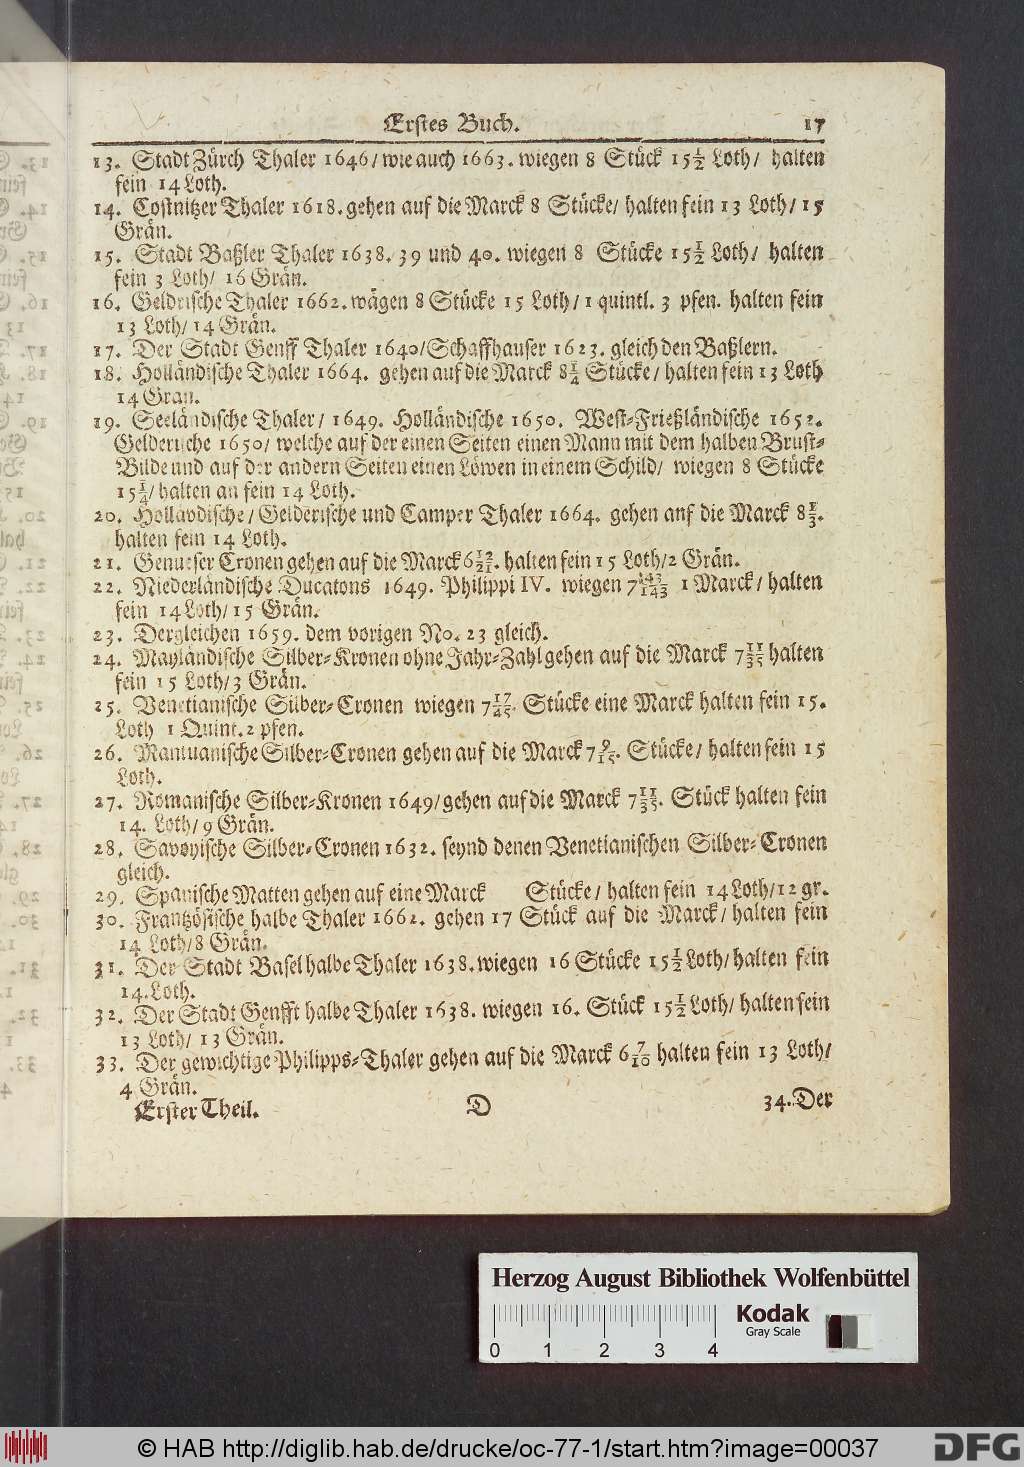 Erstes Buch. 17
13. Stadt Zürch Thaler 1646/ wie auch 1663. wiegen 8 Stück 15½ Loth/ halten
fein 14 Loth.
14. Costnitzer Thaler 1618. gehen auf die Marck 8 Stücke/ halten fein 13 Loth/ 15
Grän.
15. Stadt Baßler Thaler 1638. 39 und 40. wiegen 8 Stücke 15½ Loth/ halten
fein 3 Loth/ 16 Grän.
16. Geldrische Thaler 1662. wägen 8 Stücke 15 Loth/ 1 quintl. 3 pfen. halten fein
13 Loth/ 14 Grän.
17. Der Stadt Genff Thaler 1640/ Schaffhauser 1623. gleich den Baßlern.
18. Holländische Thaler 1664. gehen auf die Marck 8¼ Stücke/ halten fein 13 Loth
14 Grän.
19. Seeländische Thaler/ 1649. Holländische 1650. West-Frießländische 1652.
Gelderische 1650/ welche auf der einen Seiten einen Mann mit dem halben Brust-
Bilde und auf der andern Seiten einen Löwen in einem Schild/ wiegen 8 Stücke
15¼/ halten an fein 14 Loth.
20. Hollandische/ Gelderische und Camper Thaler 1664. gehen anf die Marck 8⅓.
halten fein 14 Loth.
21. Genueser Cronen gehen auf die Marck 6 12/21. halten fein 15 Loth/ 2 Grän.
22. Niederländische Ducatons 1649. Philippi IV. wiegen 7 1 Marck/ halten
fein 14 Loth/ 15 Grän.
23. Dergleichen 1659. dem vorigen No. 23 gleich.
24. Mayländische Silber-Kronen ohne Jahr-Zahl gehen auf die Marck 7 11/35 halten
fein 15 Loth/ 3 Grän.
25. Venetianische Silber-Cronen wiegen 7 17/45. Stücke eine Marck halten fein 15.
Loth 1 Quint. 2 pfen.
26. Mantuanische Silber-Cronen gehen auf die Marck 7 9/15. Stücke/ halten fein 15
Loth.
27. Romanische Silber-Kronen 1649/ gehen auf die Marck 7 11/35. Stück halten fein
14. Loth/ 9 Grän.
28. Savoyische Silber-Cronen 1632. seynd denen Venetianischen Silber-Cronen
gleich.
29. Spanische Matten gehen auf eine Marck Stücke/ halten fein 14 Loth/ 12 gr.
30. Frantzösische halbe Thaler 1662. gehen 17 Stück auf die Marck/ halten fein
14 Loth/ 8 Grän.
31. Der Stadt Basel halbe Thaler 1638. wiegen 16 Stücke 15½ Loth/ halten fein
14. Loth.
32. Der Stadt Genfft halbe Thaler 1638. wiegen 16. Stück 15½ Loth/ halten fein
13 Loth/ 13 Grän.
33. Der gewichtige Philipps-Thaler gehen auf die Marck 6 7/10 halten fein 13 Loth/
4 Grän.
Erster Theil. D 34. Der
Herzog August Bibliothek Wolfenbüttel
Kodak
Gray Scale
0 1 2 3 4
© HAB http://diglib.hab.de/drucke/oc-77-1/start.htm?image=00037
DFG